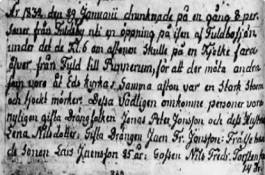 År 1832 den 29 Januarii drunknade på en gång 8 per-
soner från Fylleby uti en öppning på isen af
under det de Kl. 6 om aftonen skulle på en Kjelke fara
öfver från Fylld till Runnerum, för att der möta andra
som voro åt Eds kyrka. Samma afton var en Stark Storm
och tjockt mörker. Dessa sådligen omkomne personer voro
nyligen gifta Drängfolken Jonas Peter Jonsson och dess Hustru
Lena Nilsdotter, Gifta Drängen Jaen Fr. Jönsson: Frälse
Sonen Lars Jaensson 25 år: Gossen Nils Fredr. Torsten
14 år: